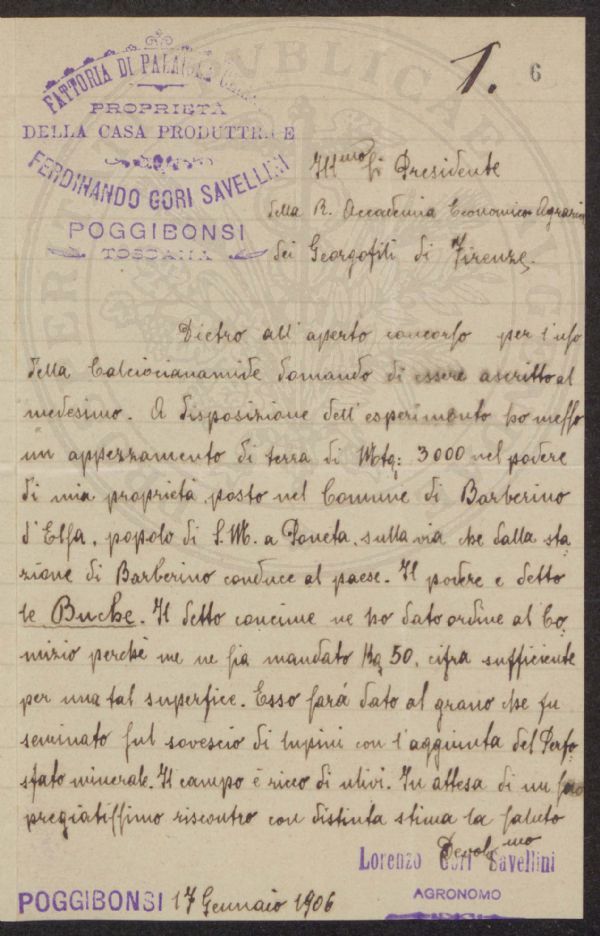 1.
6
FATTORIA DI
PROPRIETÀ
DELLA CASA PRODUTTRICE
FERDINANDO GORI SAVELLINI
POGGIBONSI
TOSCANA
Ill.mo Si Presidente
della R. Accademia Economico-Agraria
dei Georgofili di Firenze.
Dietro all'aperto concorso per l'uso
della Calciocianamide domando di essere ascritto al
medesimo. A disposizione dell'esperimento ho messo
un appezzamento di terra di Mtq: 3000 nel podere
di mia proprietà posto nel Comune di Barberino
d'Elsa, popolo di S. M. a Poneta, sulla via che dalla sta
zione di Barberino conduce al paese. Il podere e detto
le Buche. Il detto concime ne ho dato ordine al Co,
mizio perché me ne sia mandato Kg 50, cifra sufficiente
per una tal superfice. Esso sará dato al grano che fu
seminato sul sovescio di lupini con l'aggiunta del Perfo,
sfato minerale. Il campo è ricco di ulivi. In attesa di un suo
pregiatissimo riscontro con distinta stima la saluto
Devol.mo
Lorenzo Gori Savellini
AGRONOMO
POGGIBONSI 17 Gennaio 1906